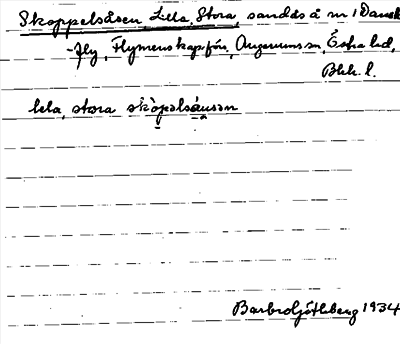 Skoppelsåsen, Lilla, Stora, sandås å nr 1 Dansk
-Fly, Flymens kapför, Augerums sn, Östra hd,
Blek. l.
lela, stora skòpəlsåusən
Barbro Götlberg 1934